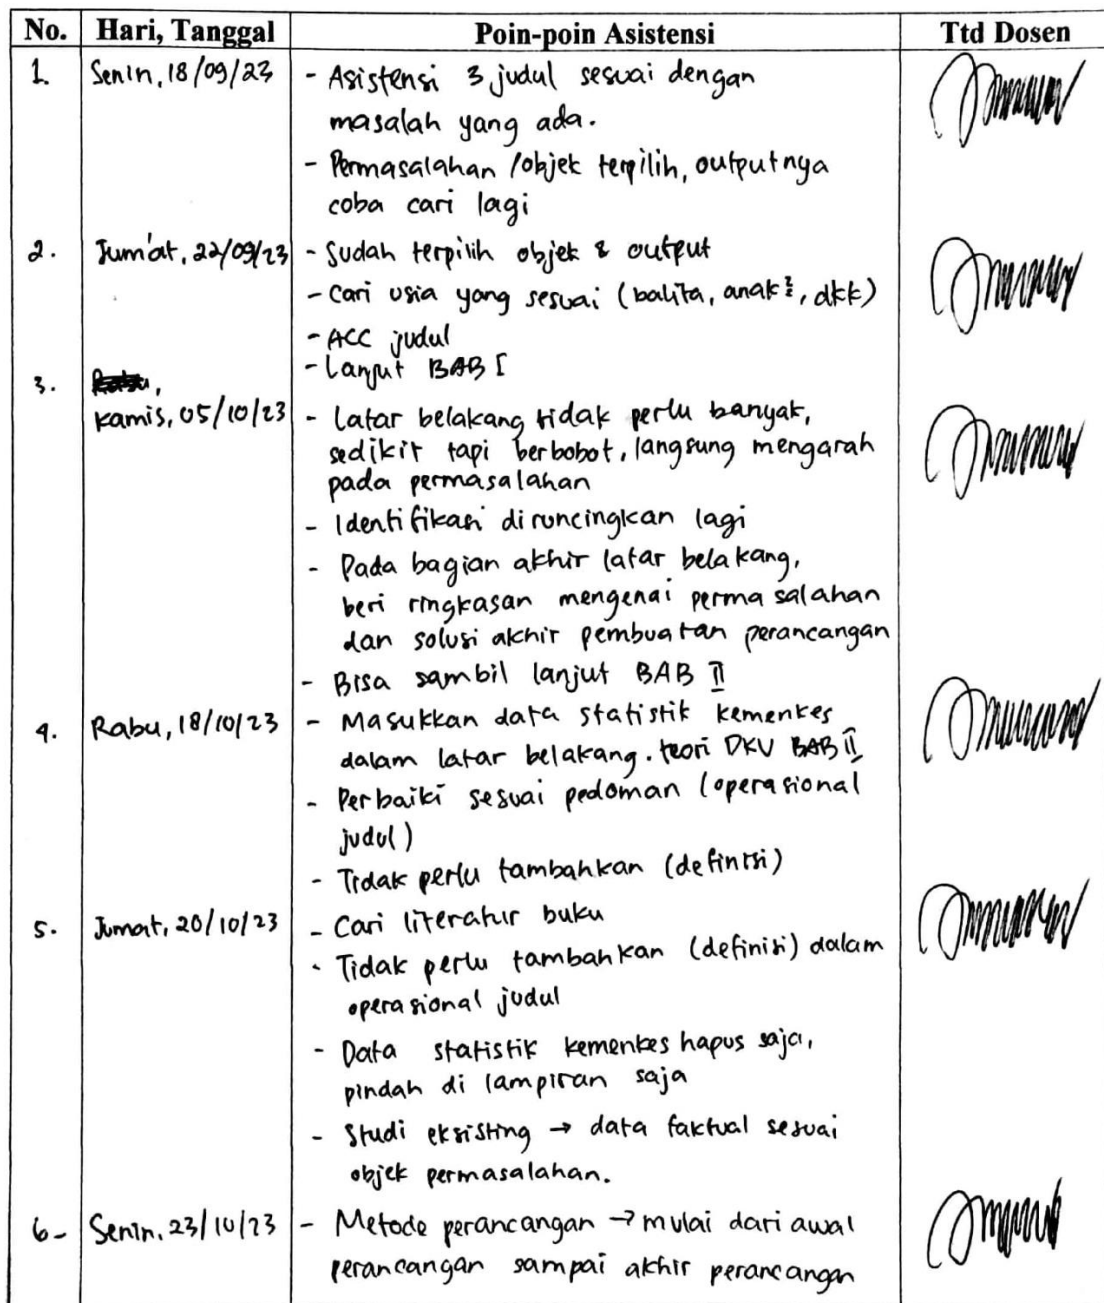 No. Hari, Tanggal Poin-poin Asistensi Ttd Dosen
1. Senin, 18/09/23 - Asistensi 3 judul sesuai dengan
masalah yang ada.
- Permasalahan /objek terpilih, outputnya
coba cari lagi
2. Jum'at, 22/09/23 - Sudah terpilih objek & output
- Cari usia yang sesuai (balita, anak², dkk)
- ACC judul
- Lanjut BAB I
3. Rabu,
Kamis, 05/10/23 - Latar belakang tidak perlu banyak,
sedikit tapi berbobot, langsung mengarah
pada permasalahan
- Identifikasi diruncingkan lagi
- Pada bagian akhir latar belakang,
beri ringkasan mengenai permasalahan
dan solusi akhir pembuatan perancangan
- Bisa sambil lanjut BAB II
4. Rabu, 18/10/23 - Masukkan data statistik kemenkes
dalam latar belakang. teori DKV BAB II
- Perbaiki sesuai pedoman (operasional
judul)
- Tidak perlu tambahkan (definisi)
5. Jumat, 20/10/23 - Cari literatur buku
- Tidak perlu tambahkan (definisi) dalam
operasional judul
- Data statistik kemenkes hapus saja,
pindah di lampiran saja
- Studi eksisting → data faktual sesuai
objek permasalahan.
6- Senin, 23/10/23 - Metode perancangan → mulai dari awal
perancangan sampai akhir perancangan